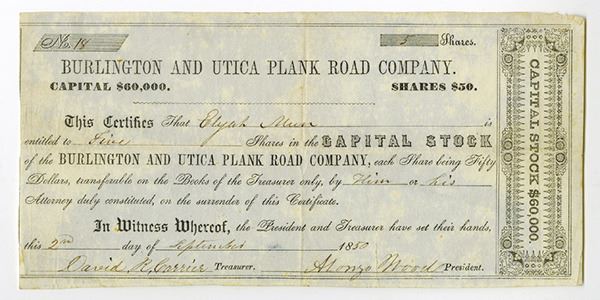 No. 18 5 Shares.
BURLINGTON AND UTICA PLANK ROAD COMPANY.
CAPITAL $60,000. SHARES $50.
This Certifies That Elijah Munn is
entitled to Five Shares in the CAPITAL STOCK
of the BURLINGTON AND UTICA PLANK ROAD COMPANY, each Share being Fifty
Dollars, transferable on the Books of the Treasurer only, by Him or his
Attorney duly constituted, on the surrender of this Certificate.
In Witness Whereof, the President and Treasurer have set their hands,
this 2nd day of September 1850
David R. Carrier Treasurer. Alonzo Wood President.
CAPITAL STOCK $60,000.